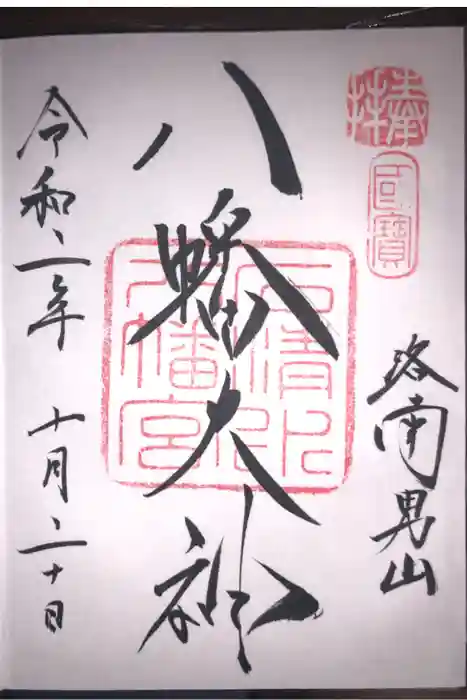 奉拝
国寳
洛南男山
八幡大神
石清水八幡宮印
令和二年 十月二十日